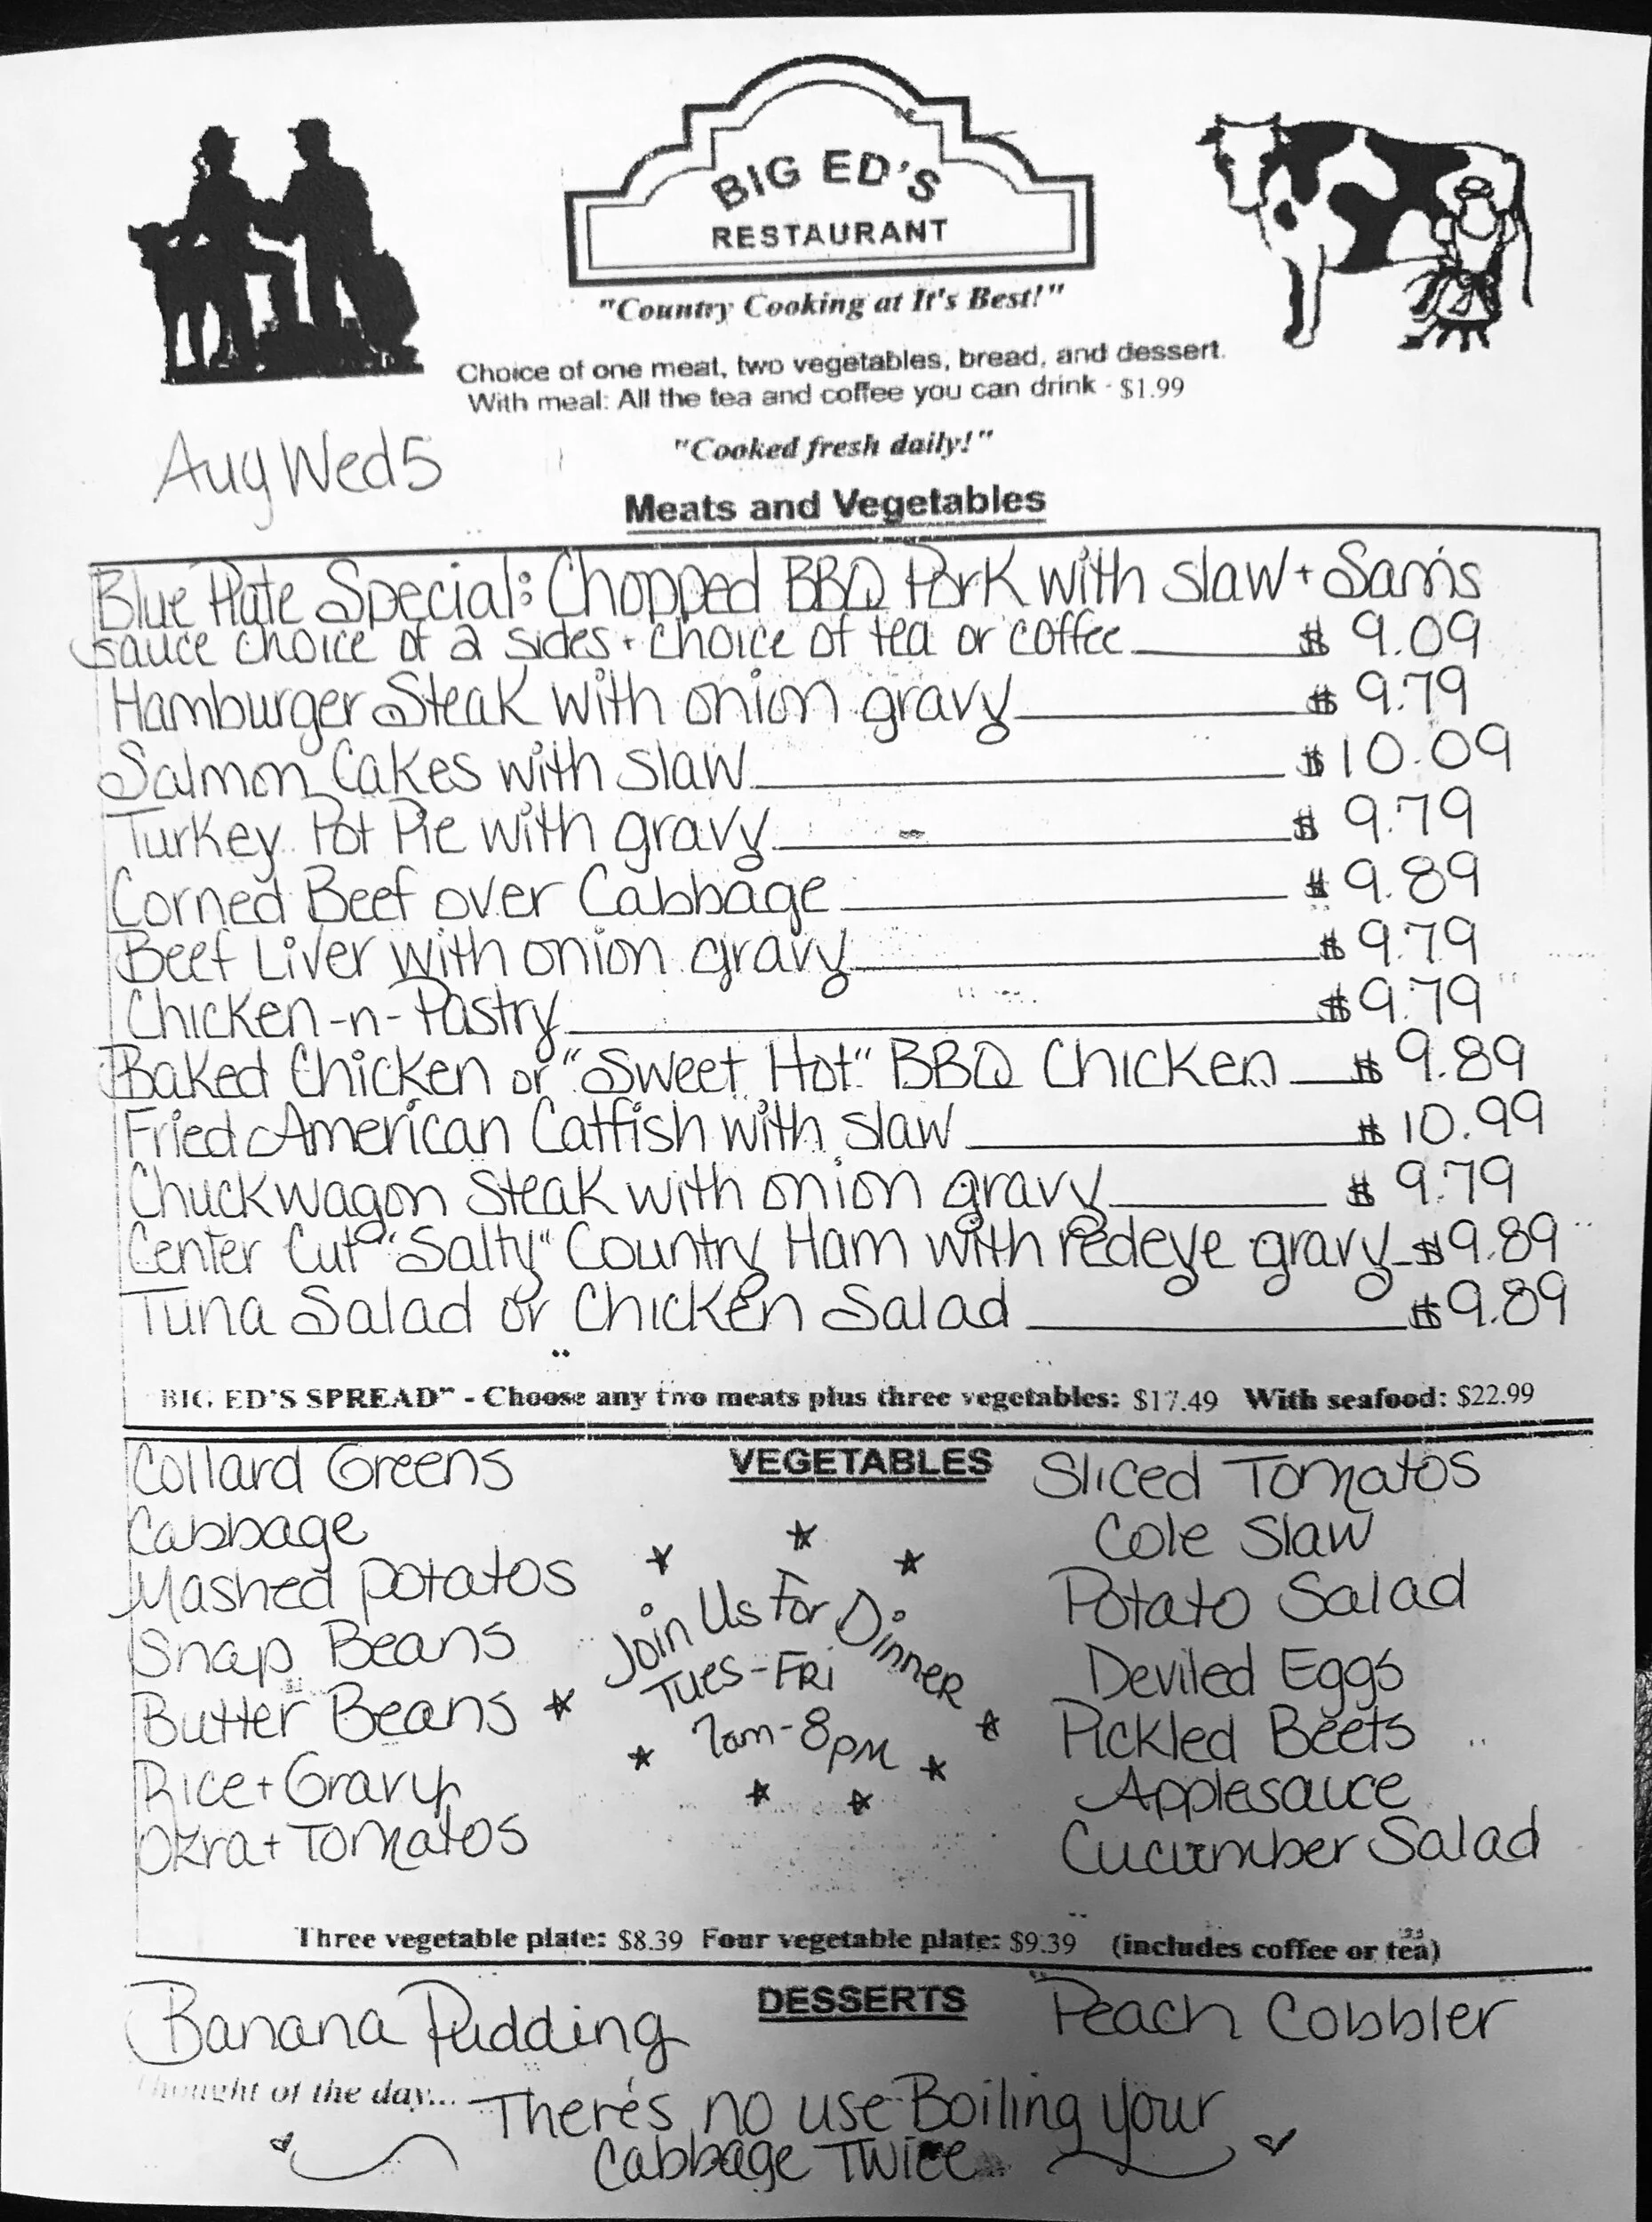 BIG ED'S
RESTAURANT
"Country Cooking at It's Best!"
Choice of one meat, two vegetables, bread, and dessert.
With meal: All the tea and coffee you can drink - $1.99
Aug Wed 5
"Cooked fresh daily!"
Meats and Vegetables
Blue Plate Special: Chopped BBQ Pork with slaw + Sam's
sauce choice of 2 sides + choice of tea or coffee $ 9.09
Hamburger Steak with onion gravy $ 9.79
Salmon Cakes with slaw $10.09
Turkey Pot Pie with gravy $ 9.79
Corned Beef over Cabbage $ 9.89
Beef Liver with onion gravy $ 9.79
Chicken-n-Pastry $9.79
Baked Chicken or "Sweet Hot" BBQ Chicken $ 9.89
Fried American Catfish with slaw $ 10.99
Chuckwagon Steak with onion gravy $ 9.79
Center Cut "Salty" Country Ham with redeye gravy $9.89
Tuna Salad or Chicken Salad $9.89
BIG ED'S SPREAD" - Choose any two meats plus three vegetables: $17.49 With seafood: $22.99
VEGETABLES
Collard Greens
Cabbage
Mashed potatos
Snap Beans
Butter Beans
Rice + Gravy
Okra + Tomatos
Join Us For Dinner
Tues-Fri
7am-8pm
Sliced Tomatos
Cole Slaw
Potato Salad
Deviled Eggs
Pickled Beets
Applesauce
Cucumber Salad
Three vegetable plate: $8.39 Four vegetable plate: $9.39 (includes coffee or tea)
DESSERTS
Banana Pudding
Peach Cobbler
Thought of the day... There's no use Boiling your
Cabbage Twice